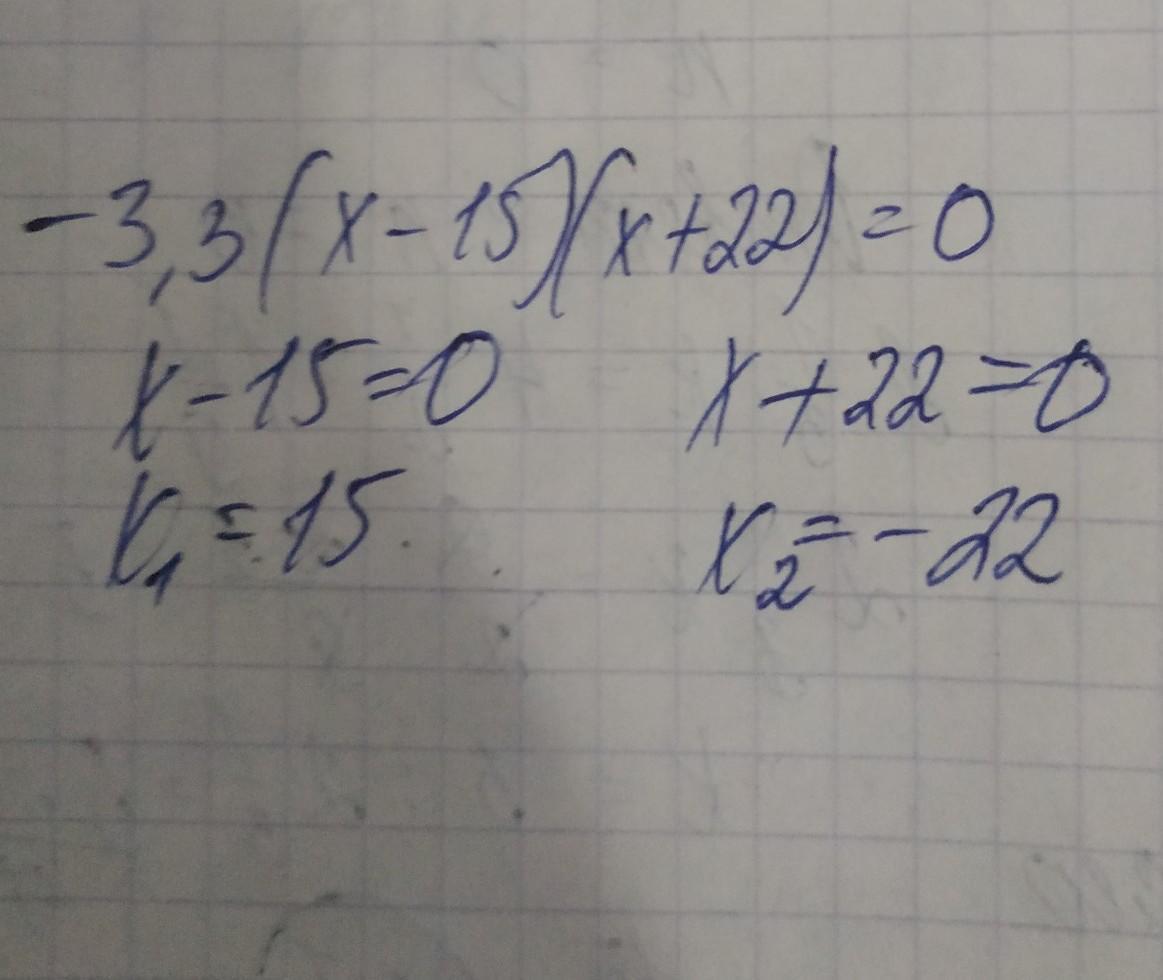 -3,3(x-15)(x+22)=0
x-15=0 x+22=0
x₁=15 x₂=-22